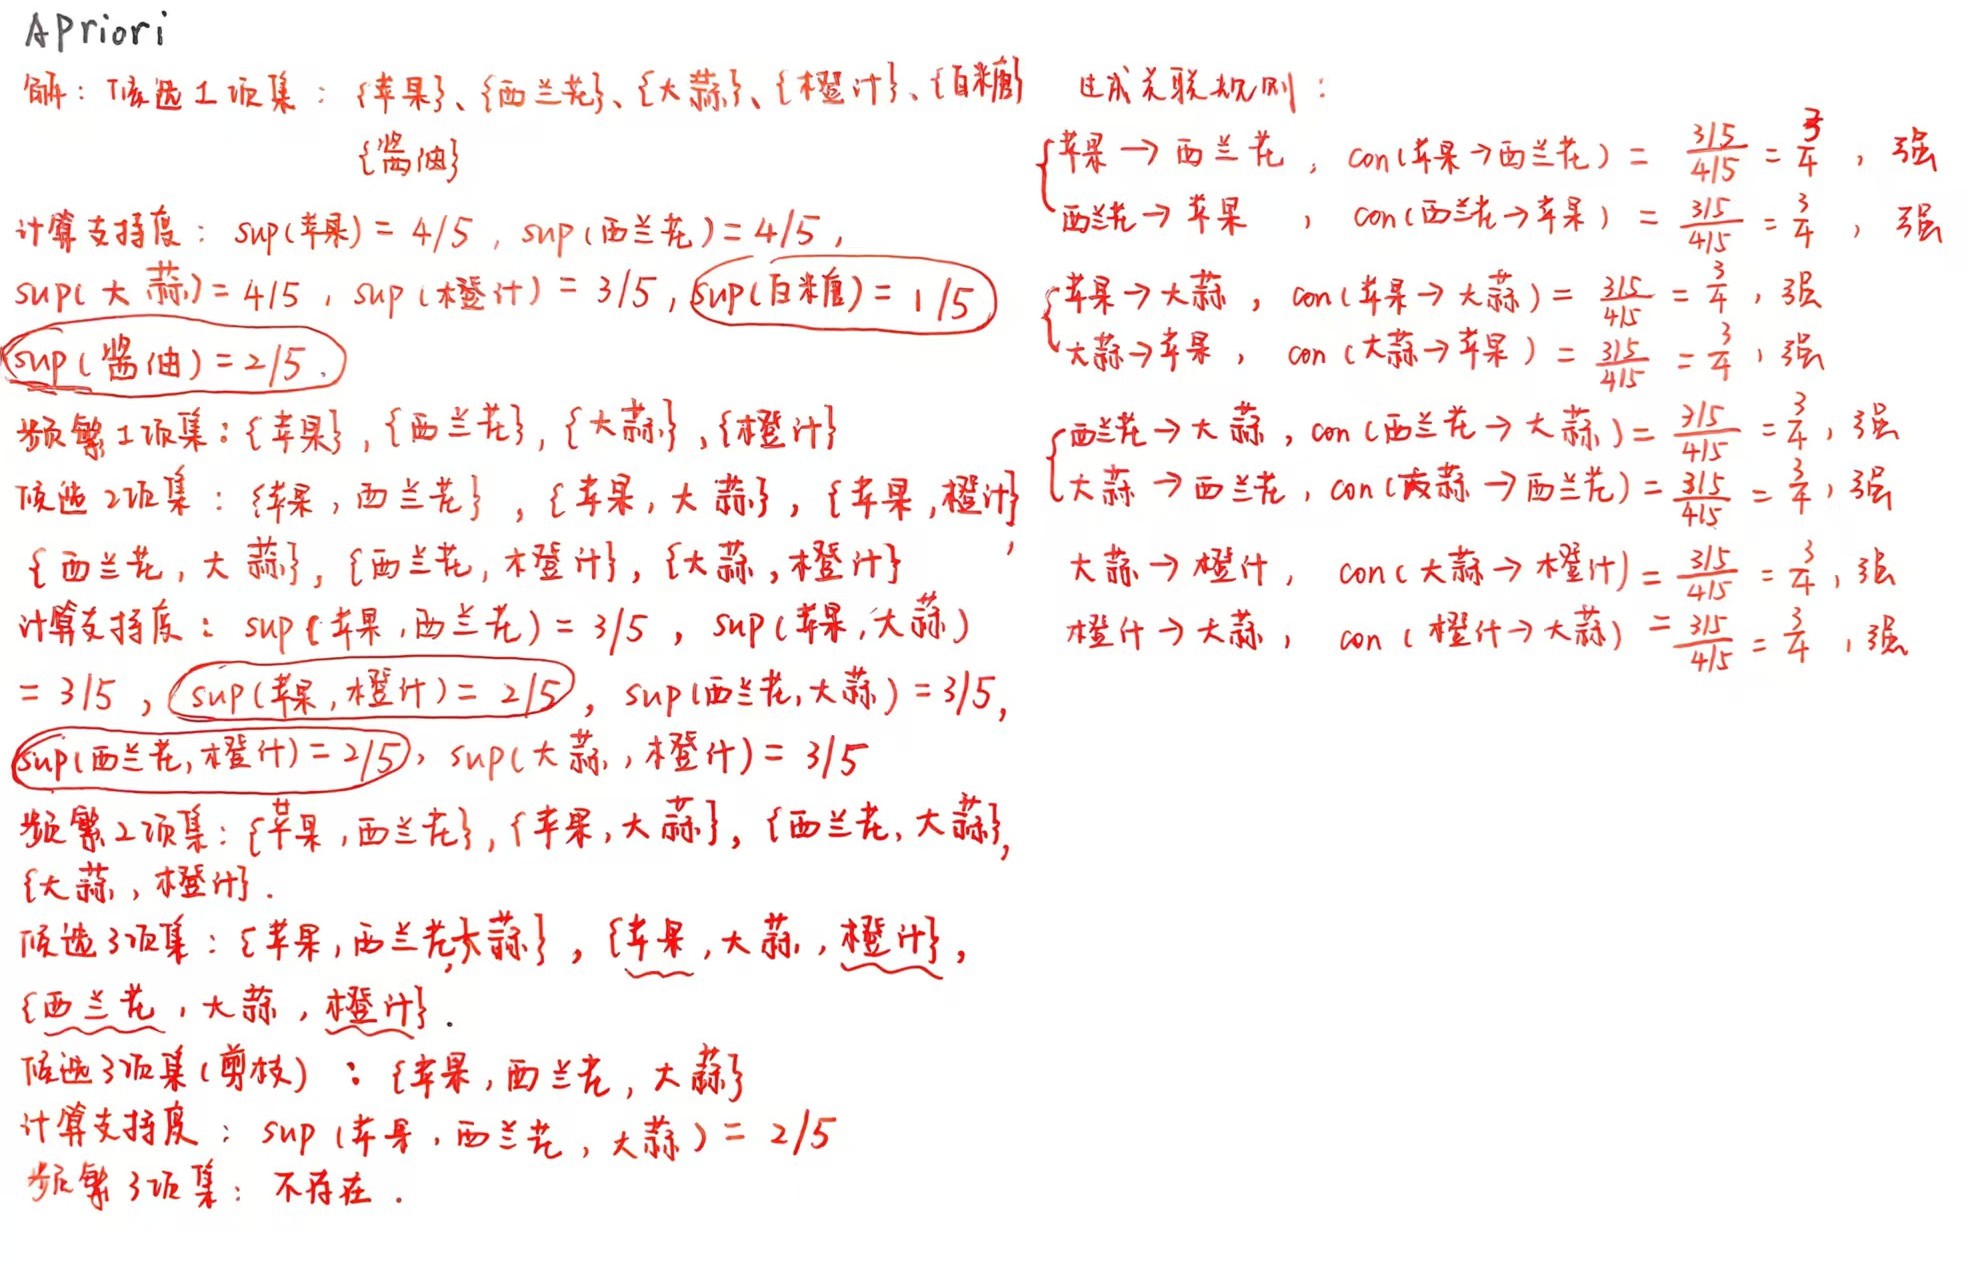 Apriori
解：候选1项集：{苹果}、{西兰花}、{大蒜}、{橙汁}、{白米糖}
{酱油}
计算支持度：sup(苹果)=4/5，sup(西兰花)=4/5，
sup(大蒜)=4/5，sup(橙汁)=3/5，sup(白米唐)=1/5
sup(酱油)=2/5.
频繁1项集：{苹果}，{西兰花}，{大蒜}，{橙汁}
候选2项集：{苹果，西兰花}，{苹果，大蒜}，{苹果，橙汁}，
{西兰花，大蒜}，{西兰花，橙汁}，{大蒜，橙汁}
计算支持度：sup(苹果，西兰花)=3/5，sup(苹果，大蒜)
=3/5，sup(苹果，橙汁)=2/5，sup(西兰花，大蒜)=3/5，
sup(西兰花，橙汁)=2/5，sup(大蒜，橙汁)=3/5
频繁2项集：{苹果，西兰花}，{苹果，大蒜}，{西兰花，大蒜}，
{大蒜，橙汁}.
候选3项集：{苹果，西兰花，大蒜}，{苹果，大蒜，橙汁}，
{西兰花，大蒜，橙汁}.
候选3项集(剪枝)：{苹果，西兰花，大蒜}
计算支持度：sup(苹果，西兰花，大蒜)=2/5
频繁3项集：不存在.
生成关联规则：
苹果→西兰花，con(苹果→西兰花)=(3/5)/(4/5)=3/4，强
西兰花→苹果，con(西兰花→苹果)=(3/5)/(4/5)=3/4，强
苹果→大蒜，con(苹果→大蒜)=(3/5)/(4/5)=3/4，强
大蒜→苹果，con(大蒜→苹果)=(3/5)/(4/5)=3/4，强
西兰花→大蒜，con(西兰花→大蒜)=(3/5)/(4/5)=3/4，强
大蒜→西兰花，con(大蒜→西兰花)=(3/5)/(4/5)=3/4，强
大蒜→橙汁，con(大蒜→橙汁)=(3/5)/(4/5)=3/4，强
橙汁→大蒜，con(橙汁→大蒜)=(3/5)/(4/5)=3/4，强